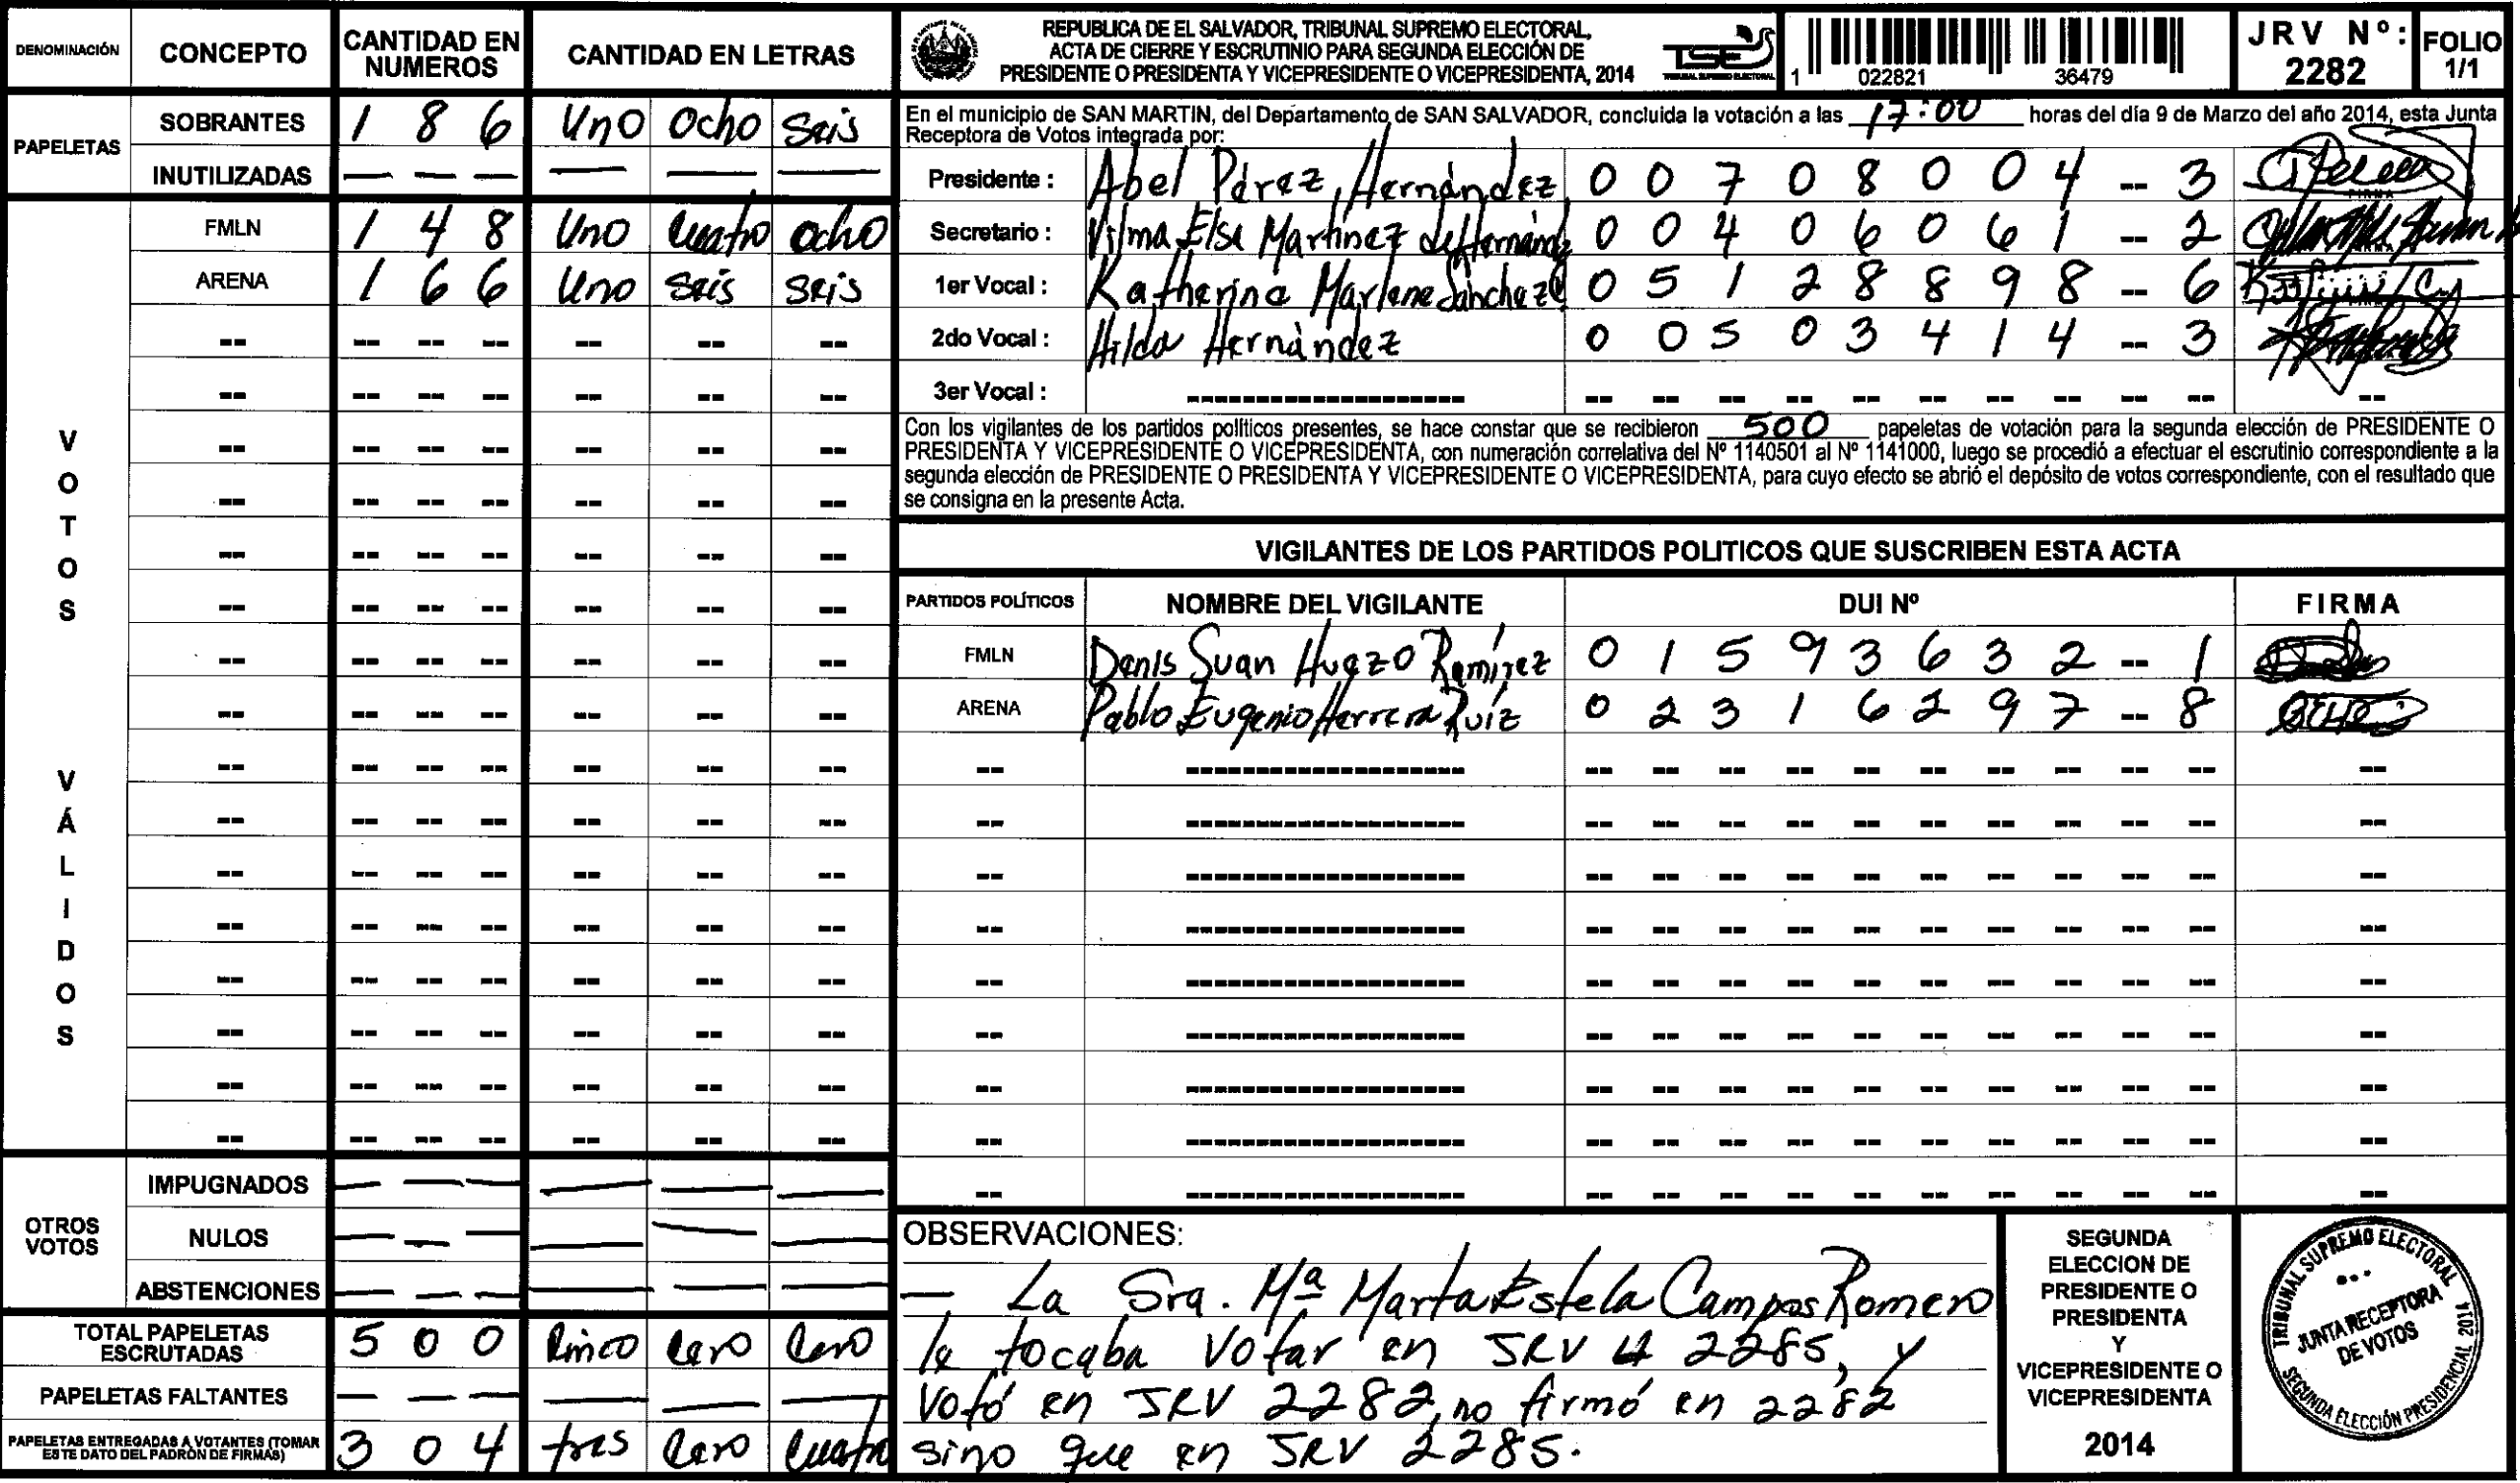 DENOMINACIÓN CONCEPTO CANTIDAD EN NUMEROS CANTIDAD EN LETRAS
PAPELETAS
SOBRANTES 1 8 6 Uno Ocho Seis
INUTILIZADAS — — — — — —
VOTOS VÁLIDOS
FMLN 1 4 8 Uno Cuatro ocho
ARENA 1 6 6 Uno Seis Seis
OTROS VOTOS
IMPUGNADOS — — — — — —
NULOS — — — — — —
ABSTENCIONES — — — — — —
TOTAL PAPELETAS ESCRUTADAS 5 0 0 Cinco Cero Cero
PAPELETAS FALTANTES — — — — — —
PAPELETAS ENTREGADAS A VOTANTES (TOMAR ESTE DATO DEL PADRÓN DE FIRMAS) 3 0 4 tres Cero Cuatro
REPUBLICA DE EL SALVADOR, TRIBUNAL SUPREMO ELECTORAL,
ACTA DE CIERRE Y ESCRUTINIO PARA SEGUNDA ELECCIÓN DE
PRESIDENTE O PRESIDENTA Y VICEPRESIDENTE O VICEPRESIDENTA, 2014
TSE
TRIBUNAL SUPREMO ELECTORAL
1 022821 36479
JRV Nº: 2282
FOLIO 1/1
En el municipio de SAN MARTIN, del Departamento de SAN SALVADOR, concluida la votación a las 17:00 horas del día 9 de Marzo del año 2014, esta Junta
Receptora de Votos integrada por:
Presidente : Abel Pérez Hernández 0 0 7 0 8 0 0 4 -- 3
Secretario : Vilma Elsa Martínez de Hernánde 0 0 4 0 6 0 6 1 -- 2
1er Vocal : Katherine Marlene Sánchez 0 5 1 2 8 8 9 8 -- 6
2do Vocal : Hilda Hernàndez 0 0 5 0 3 4 1 4 -- 3
3er Vocal : -- -- -- -- -- -- -- -- -- --
Con los vigilantes de los partidos políticos presentes, se hace constar que se recibieron 500 papeletas de votación para la segunda elección de PRESIDENTE O
PRESIDENTA Y VICEPRESIDENTE O VICEPRESIDENTA, con numeración correlativa del Nº 1140501 al Nº 1141000, luego se procedió a efectuar el escrutinio correspondiente a la
segunda elección de PRESIDENTE O PRESIDENTA Y VICEPRESIDENTE O VICEPRESIDENTA, para cuyo efecto se abrió el depósito de votos correspondiente, con el resultado que
se consigna en la presente Acta.
VIGILANTES DE LOS PARTIDOS POLITICOS QUE SUSCRIBEN ESTA ACTA
PARTIDOS POLÍTICOS NOMBRE DEL VIGILANTE DUI Nº FIRMA
FMLN Denis Suan Huezo Ramírez 0 1 5 9 3 6 3 2 -- 1
ARENA Pablo Eugenio Herrera Ruíz 0 2 3 1 6 2 9 7 -- 8
OBSERVACIONES:
— La Sra. Mª Marta Estela Campos Romero
le tocaba Votar en JRV 2285, y
Votó en JRV 2282, no firmó en 2282
sino que en JRV 2285.
SEGUNDA
ELECCION DE
PRESIDENTE O
PRESIDENTA
Y
VICEPRESIDENTE O
VICEPRESIDENTA
2014
TRIBUNAL SUPREMO ELECTORAL
JUNTA RECEPTORA
DE VOTOS
SEGUNDA ELECCIÓN PRESIDENCIAL 2014